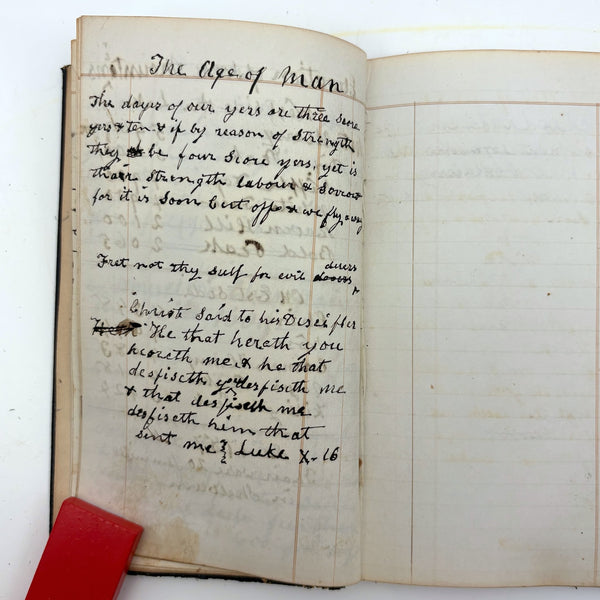 The Age of Man
The dayes of our yers are three score
yers & ten & if by reason of Strength
they be four Score yers, yet is
their Strength labour & Sorrow
for it is Soon Cut off & we fly away
Fret not thy self for evil
duers
Christ Said to his Discipler
He that hereth you
heareth me & he that
despiseth you despiseth me
& that despiseth me
despiseth him that
sent me Luke X-16